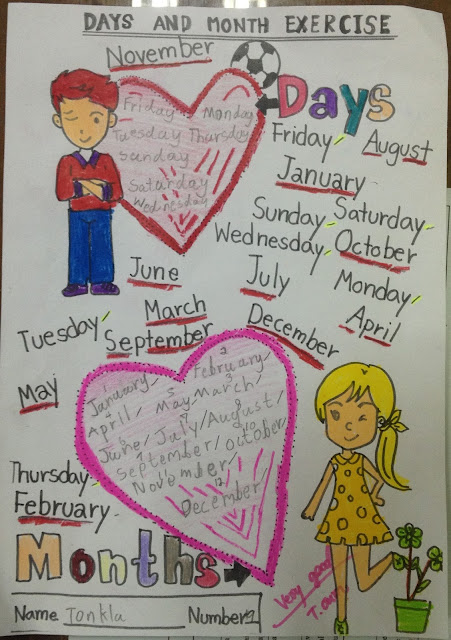 DAYS AND MONTH EXERCISE
November
Days
Friday Monday
Tuesday Thursday
Sunday
Saturday
Wednesday
Friday August
January
Sunday Saturday
Wednesday October
June July Monday
Tuesday March April
September December
May
January 1 February 2
April 4 May 5 March 3
June 6 July 7 August 8
September 9 October 10
November 11
December 12
Thursday
February
Months
Very good
Name Tonkla Number